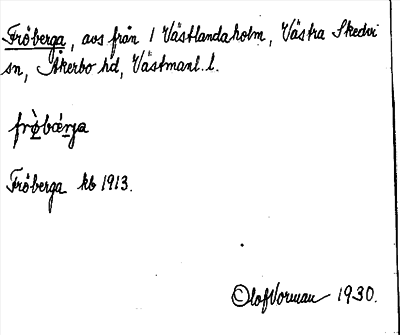 Fröberga, avs från 1 Västlandaholm, Västra Skedvi
sn, Åkerbo hd, Västmanl. l.
frø̀bærja
Fröberga kb 1913.
Olof Vorman 1930.